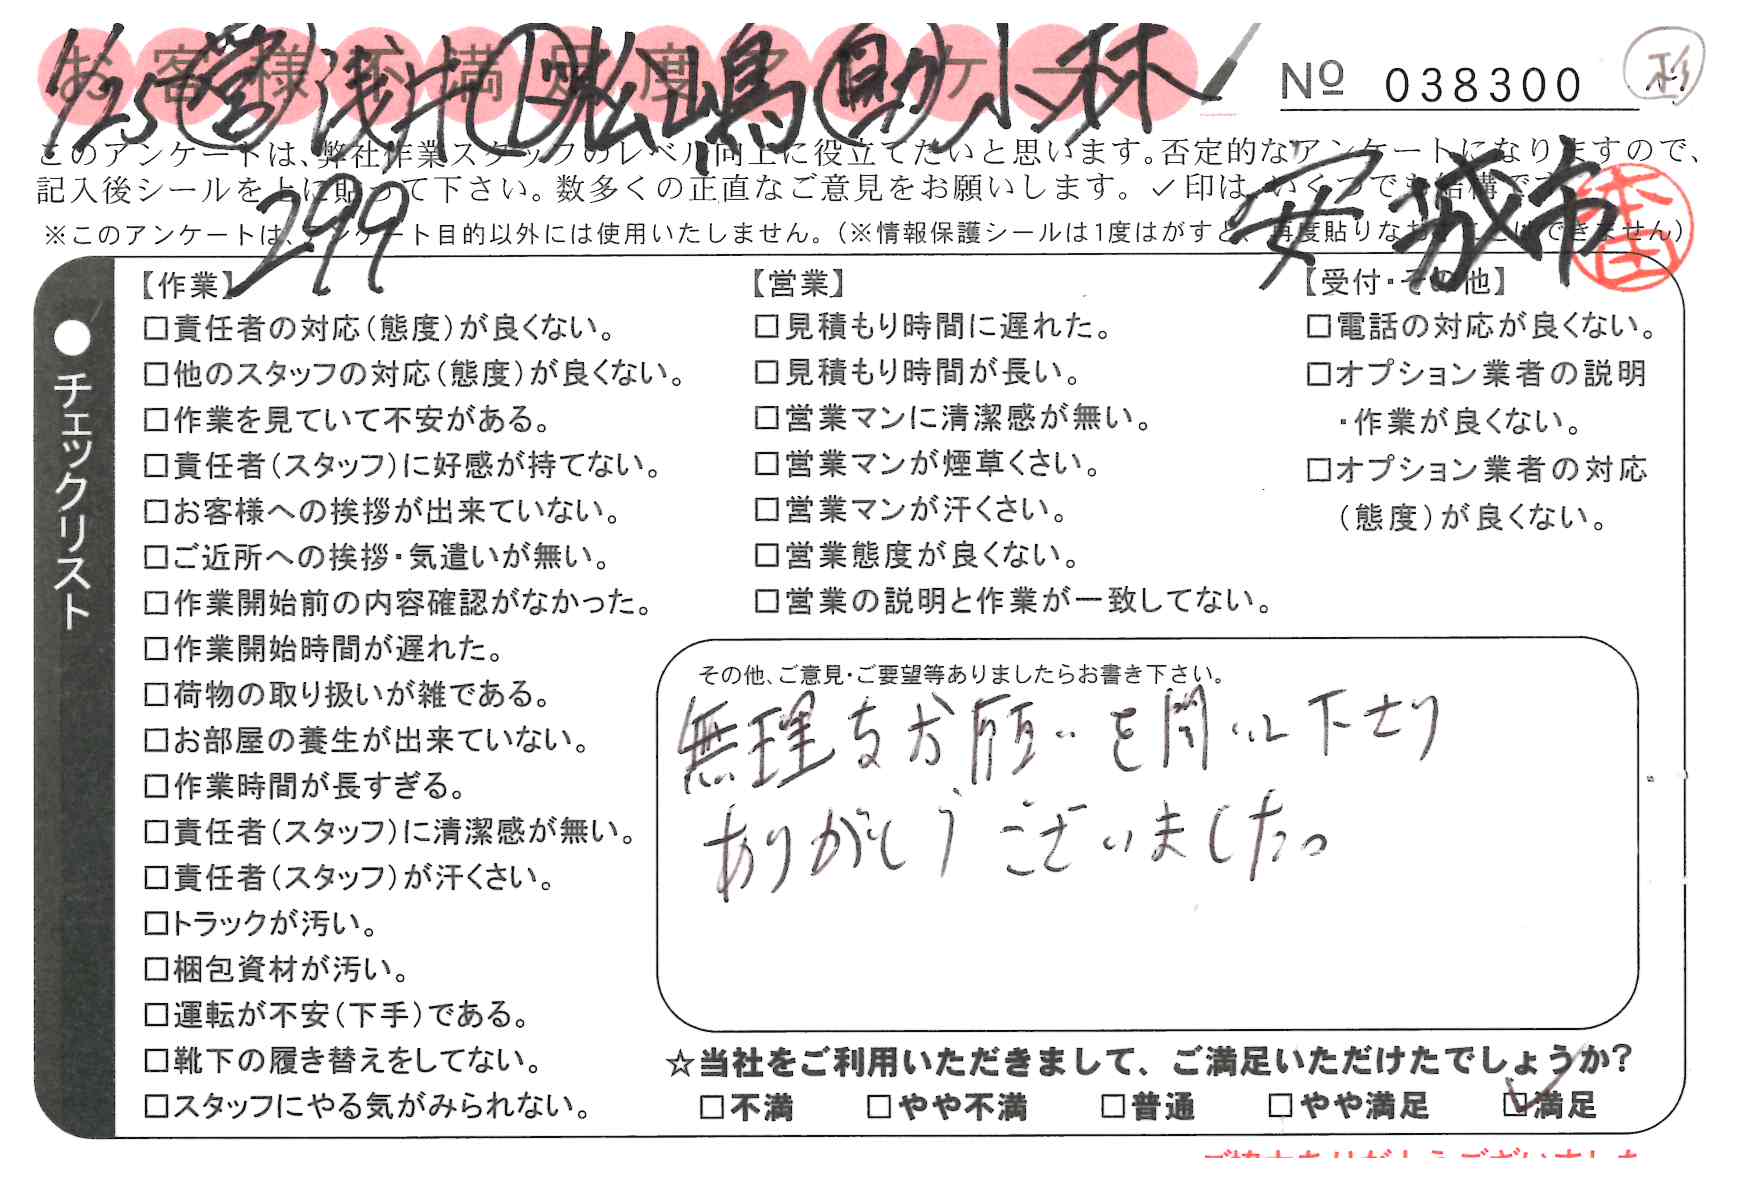 お客様不満足度アンケート
1/25 営 浅井 L 松嶋 助 小林
No 038300
杉
このアンケートは、弊社作業スタッフのレベル向上に役立てたいと思います。否定的なアンケートになりますので、
記入後シールを上に貼って下さい。数多くの正直なご意見をお願いします。✓印は、いくつでも結構です。
※このアンケートは、アンケート目的以外には使用いたしません。(※情報保護シールは1度はがすと、再度貼りなおすことはできません)
299
安城市
本田
●チェックリスト
【作業】
□責任者の対応(態度)が良くない。
□他のスタッフの対応(態度)が良くない。
□作業を見ていて不安がある。
□責任者(スタッフ)に好感が持てない。
□お客様への挨拶が出来ていない。
□ご近所への挨拶・気遣いが無い。
□作業開始前の内容確認がなかった。
□作業開始時間が遅れた。
□荷物の取り扱いが雑である。
□お部屋の養生が出来ていない。
□作業時間が長すぎる。
□責任者(スタッフ)に清潔感が無い。
□責任者(スタッフ)が汗くさい。
□トラックが汚い。
□梱包資材が汚い。
□運転が不安(下手)である。
□靴下の履き替えをしてない。
□スタッフにやる気がみられない。
【営業】
□見積もり時間に遅れた。
□見積もり時間が長い。
□営業マンに清潔感が無い。
□営業マンが煙草くさい。
□営業マンが汗くさい。
□営業態度が良くない。
□営業の説明と作業が一致してない。
【受付・その他】
□電話の対応が良くない。
□オプション業者の説明
・作業が良くない。
□オプション業者の対応
(態度)が良くない。
その他、ご意見・ご要望等ありましたらお書き下さい。
無理なお願いを聞いて下さり
ありがとうございました。
☆当社をご利用いただきまして、ご満足いただけたでしょうか?
□不満 □やや不満 □普通 □やや満足 ☑満足
ご協力ありがとうございました